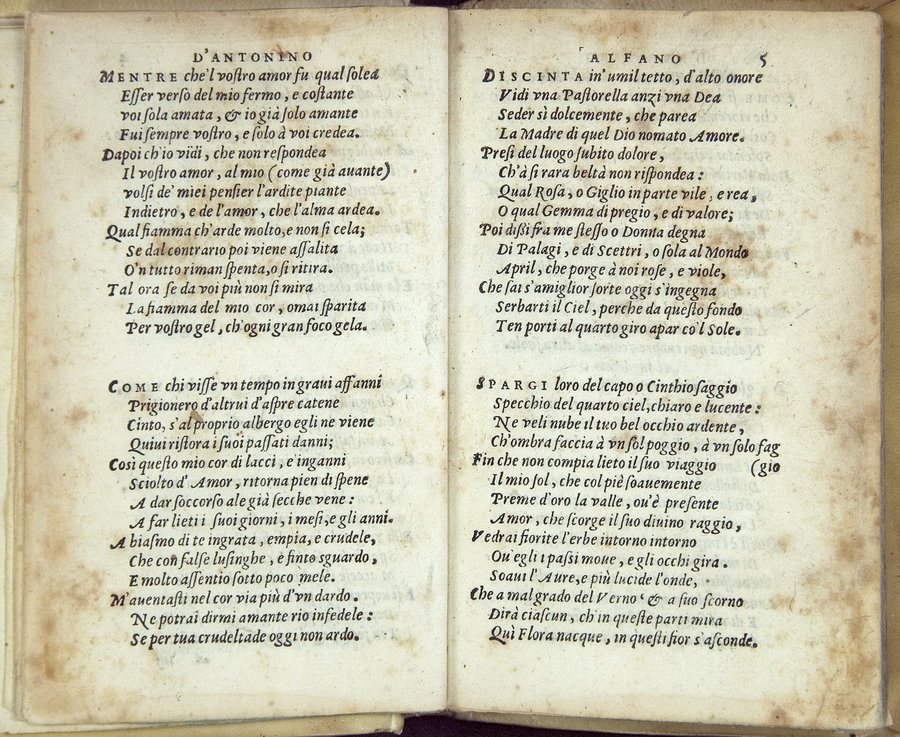 D'ANTONINO
MENTRE che'l vostro amor fu qual solea
Esser verso del mio fermo, e costante
voi sola amata, & io già solo amante
Fui sempre vostro, e solo à voi credea.
Dapoi ch'io vidi, che non respondea
Il vostro amor, al mio (come già auante)
volsi de' miei pensier l'ardite piante
Indietro, e de l'amor, che l'alma ardea.
Qual fiamma ch'arde molto, e non si cela;
Se dal contrario poi viene assalita
O'n tutto riman spenta, o si ritira.
Tal ora se da voi più non si mira
La fiamma del mio cor, omai sparita
Per vostro gel, ch'ogni gran foco gela.
COME chi visse vn tempo in graui affanni
Prigionero d'altrui d'aspre catene
Cinto, s'al proprio albergo egli ne viene
Quiui ristora i suoi passati danni;
Così questo mio cor di lacci, e inganni
Sciolto d'Amor, ritorna pien di spene
A dar soccorso ale già secche vene:
A far lieti i suoi giorni, i mesi, e gli anni.
A biasmo di te ingrata, empia, e crudele,
Che con false lusinghe, e finto sguardo,
E molto assentio sotto poco mele.
M'auentasti nel cor via più d'vn dardo.
Ne potrai dirmi amante rio infedele:
Se per tua crudeltade oggi non ardo.
ALFANO 5
DISCINTA in'umil tetto, d'alto onore
Vidi vna Pastorella anzi vna Dea
Seder sì dolcemente, che parea
La Madre di quel Dio nomato Amore.
Presi del luogo subito dolore,
Ch'à sì rara beltà non rispondea:
Qual Rosa, o Giglio in parte vile, e rea,
O qual Gemma di pregio, e di valore;
Poi dissi fra me stesso o Donna degna
Di Palagi, e di Scettri, o sola al Mondo
April, che porge à noi rose, e viole,
Che sai s'amiglior sorte oggi s'ingegna
Serbarti il Ciel, perche da questo fondo
Ten porti al quarto giro a par co'l Sole.
SPARGI loro del capo o Cinthio saggio
Specchio del quarto ciel, chiaro e lucente:
Ne veli nube il tuo bel occhio ardente,
Ch'ombra faccia à vn sol poggio, à vn solo fag
Fin che non compia lieto il suo viaggio (gio
Il mio sol, che col piè soauemente
Preme d'oro la valle, ou'è presente
Amor, che scorge il suo diuino raggio,
Vedrai fiorite l'erbe intorno intorno
Ou'egli i passi moue, e gli occhi gira.
Soaui l'Aure, e più lucide l'onde,
Che a mal grado del Verno' & a suo scorno
Dirà ciascun, ch'in queste parti mira
Quì Flora nacque, in questi fior s'asconde.